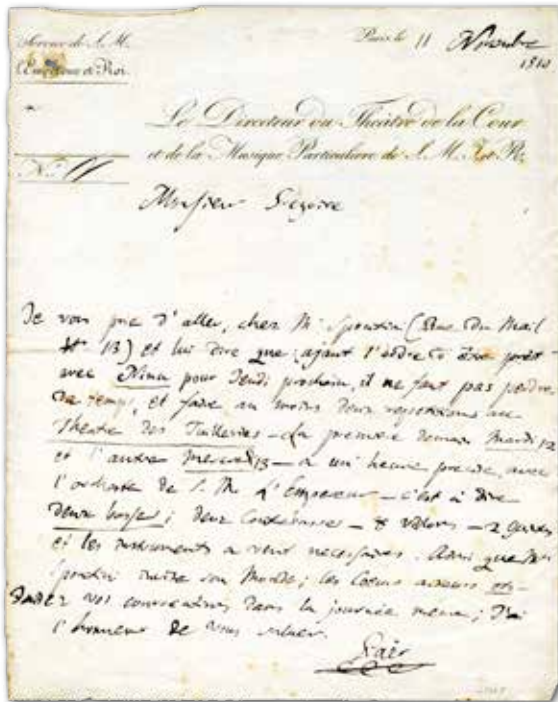 Service de S. M.
l'Empereur et Roi.
Paris le 11 Novembre
1810
Le Directeur du Théâtre de la Cour
et de la Musique Particulière de S. M. I. et R.
N.º
Monsieur Grégoire
Je vous prie d'aller, chez Mr Spontin (Rue du Mail
Nº 13) et lui dire que, ayant l'ordre d'être prêt
avec Nina pour Jeudi prochain, il ne faut pas perdre
de temps, et faire au moins deux repetitions au
Théatre des Tuilleries - La première demain Mardi 12
et l'autre Mercredi 13 - a un' heure precise, avec
l'orchestre de S. M. l'Empereur - c'est à dire
deux basses; deux Contrebasse - 8 violons - 2
et les instruments a vent necessaires. Ainsi que
Spontini son Monde; les Coeurs acteurs
vos convocations dans la journée meme; J'ai
l'honneur de vous saluer.
Paër